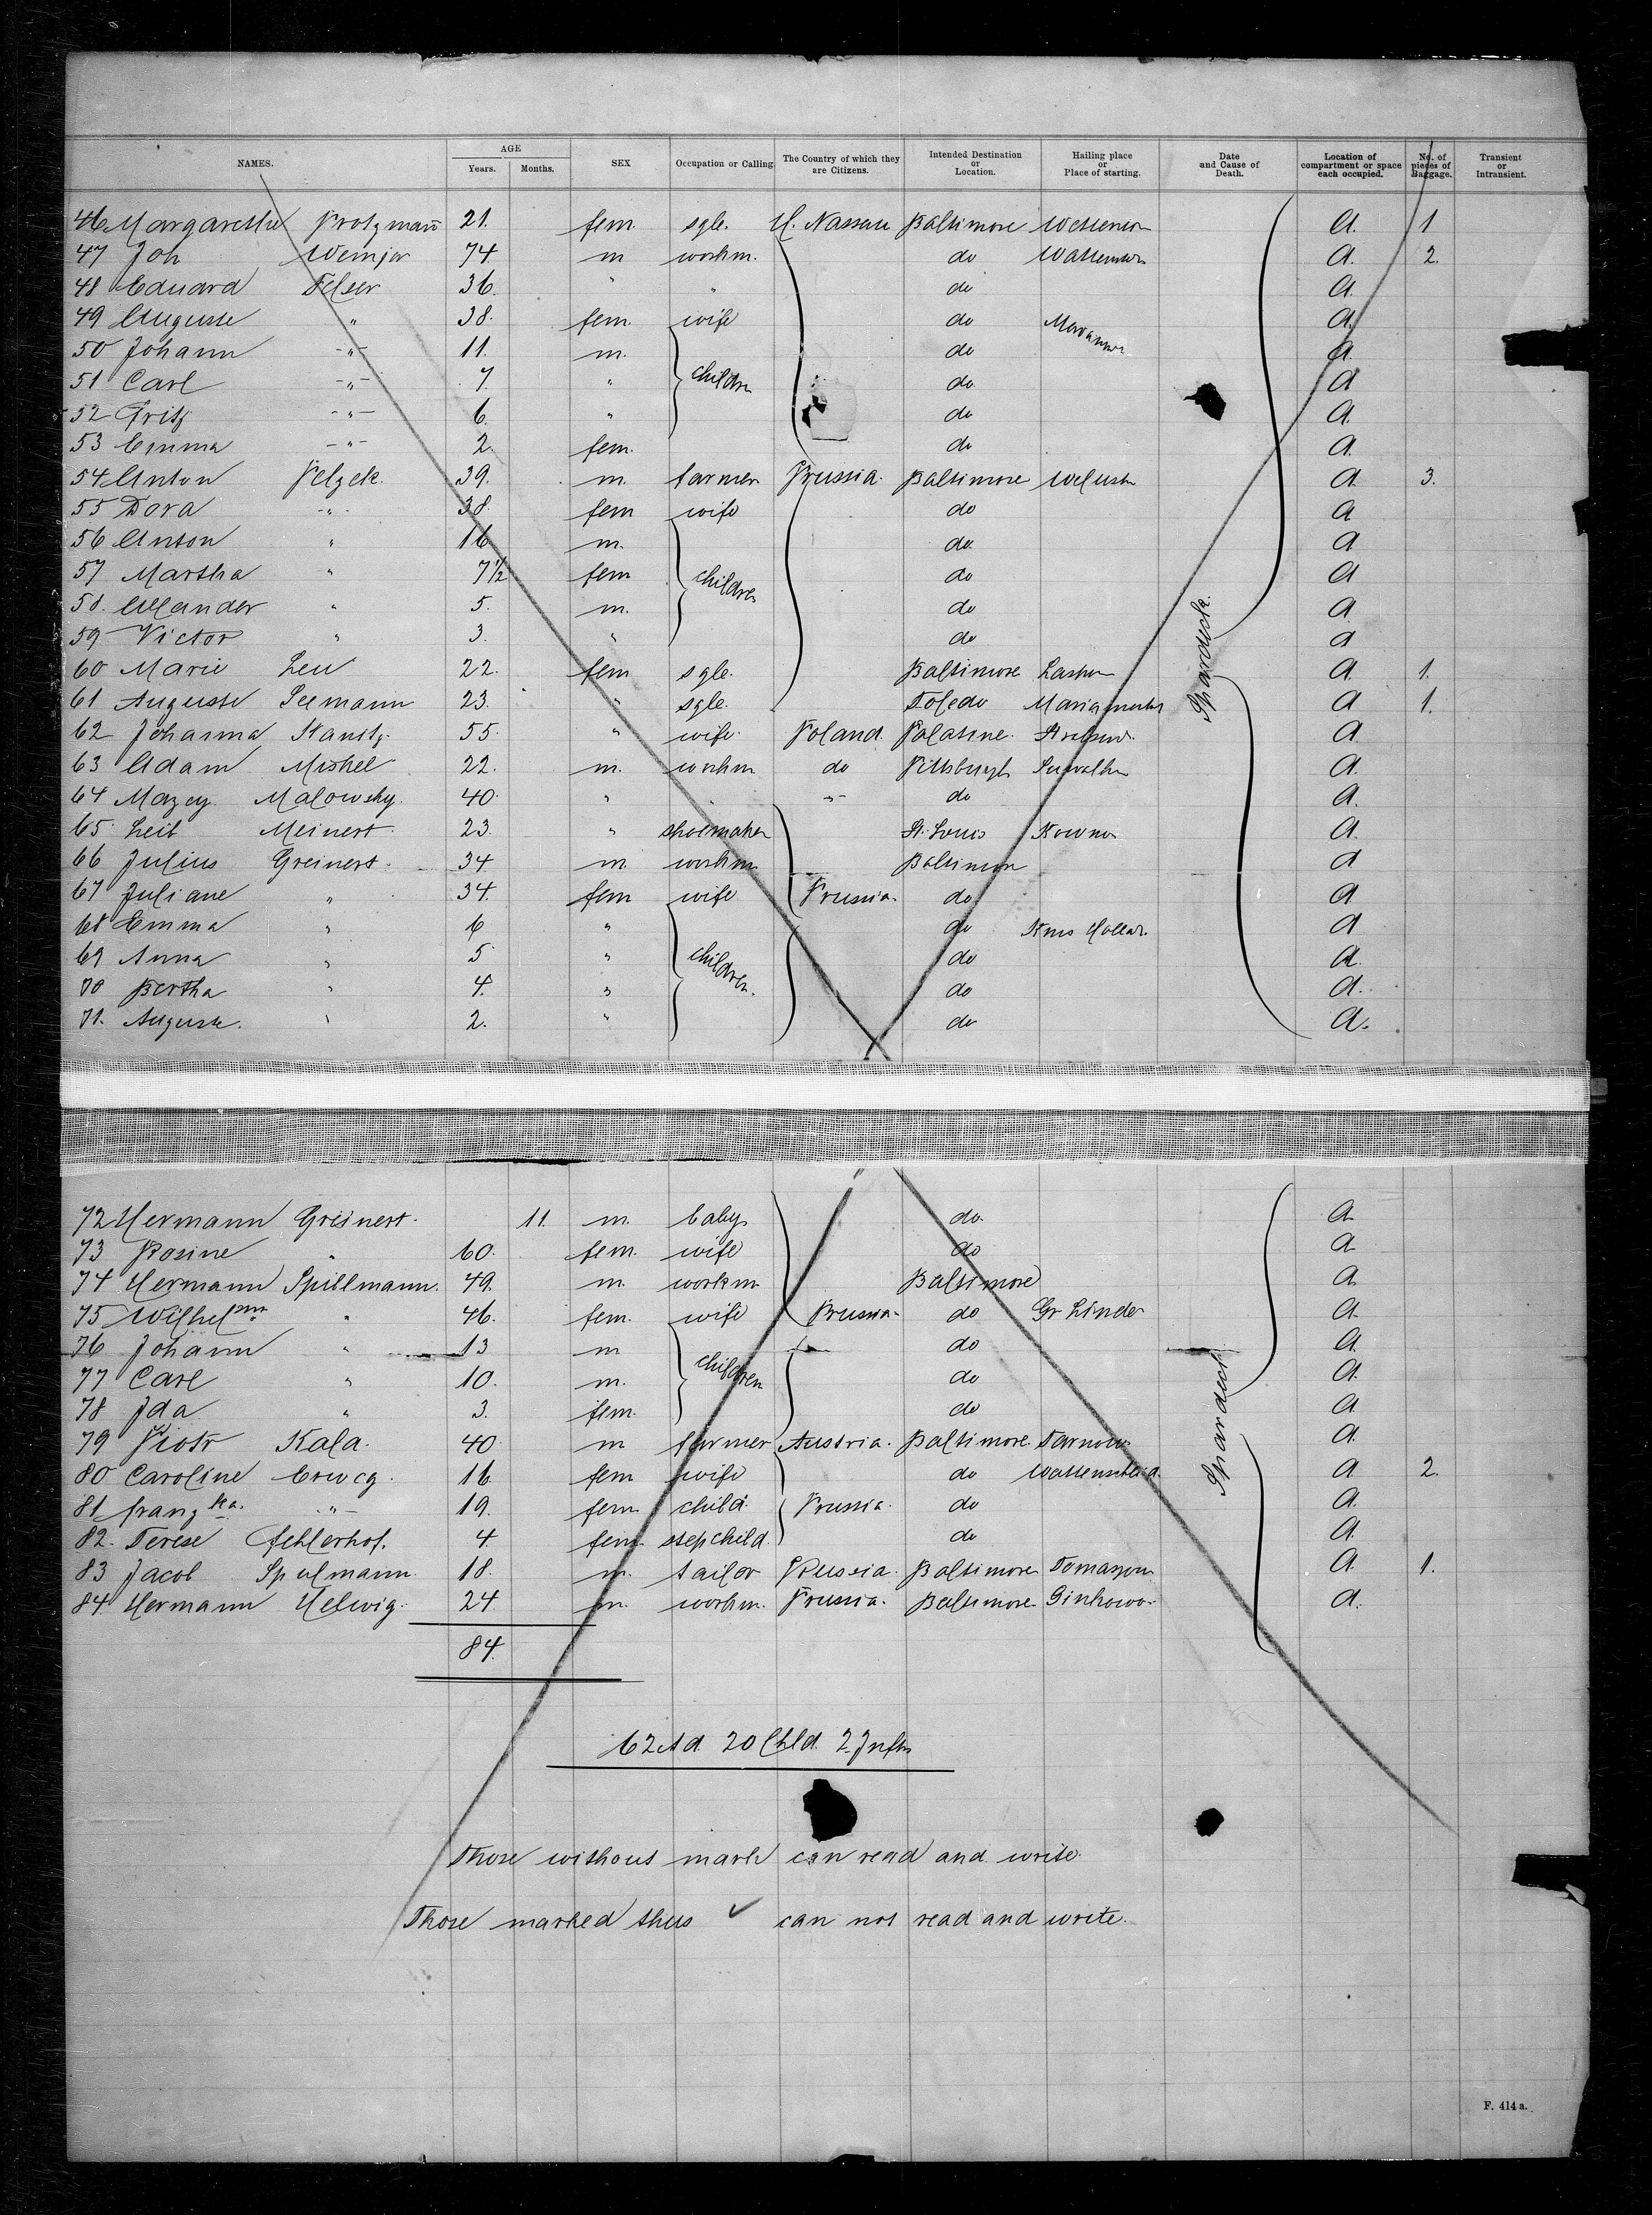 NAMES. AGE Years. Months. SEX Occupation or Calling. The Country of which they are Citizens. Intended Destination or Location. Hailing place or Place of starting. Date and Cause of Death. Location of compartment or space each occupied. No. of pieces of Baggage. Transient or Intransient.
46 Margarethe Protzmann 21. fem. sgle. H. Nassau Baltimore a. 1
47 Joh 74 m workm. do a. 2.
48 Eduard Felser 36. " " do a.
49 Auguste " 38. fem. wife do a.
50 Johann -"- 11. m. do a
51 Carl -"- 7. " children do a
52 Fritz -"- 6. " do a.
53 Emma -"- 2. fem. do a.
54 Anton Pelzek 39. m. farmer Prussia. Baltimore a. 3.
55 Dora -"- 38. fem wife do a
56 Anton " 16 m. do. a
57 Martha " 7½ fem children do a
58. " 5. m. do a
59 Victor " 3. " do a
60 Marie Leu 22. fem sgle. Baltimore a. 1.
61 Auguste Seemann 23. " sgle. Toledo a 1.
Spardeck.
62 Johanna 55. " wife. Poland. Palatine. a
63 Adam Mishel 22. m. workm do Pittsburgh a.
64 Mazey Malowsky. 40. " " -"- do a.
65. Leib Meinert. 23. " shoemaker St. Louis Kowno a.
66 Julius Greinert. 34 m workm Baltimore a
67 Juliane " 34. fem wife Prussia. do a
68 Emma " 6 " do a
69 Anna " 5 " children. do a.
70 Bertha " 4. " do a.
71. Auguste. " 2. " do a.
72 Hermann Greinert. 11. m. baby do. a.
73 Rosine " 60. fem. wife do a
74 Hermann Spillmann. 49. m. workm Baltimore a
75 Wilhelm " 46. fem. wife Prussia. do Gr Linde a.
76 Johann " 13 m do a.
77 Carl " 10. m. children do a.
78 Ida " 3. fem. do a
Spardeck
79 Piotr Kala. 40 m farmer Austria. Baltimore. Tarnow a.
80 Caroline 16 fem wife do a 2.
81 Franz ka. -"- 19. fem child. Prussia. do a.
82. Terese 4. fem. stepchild. do a.
83 Jacob Spulmann. 18. m. tailor Russia. Baltimore a. 1.
84 Hermann Helwig. 24 m. workm. Prussia. Baltimore a.
84.
62 Ad. 20 Chld. 2 Infts
Those without mark can read and write.
Those marked thus ✓ can not read and write.
F. 414 a.